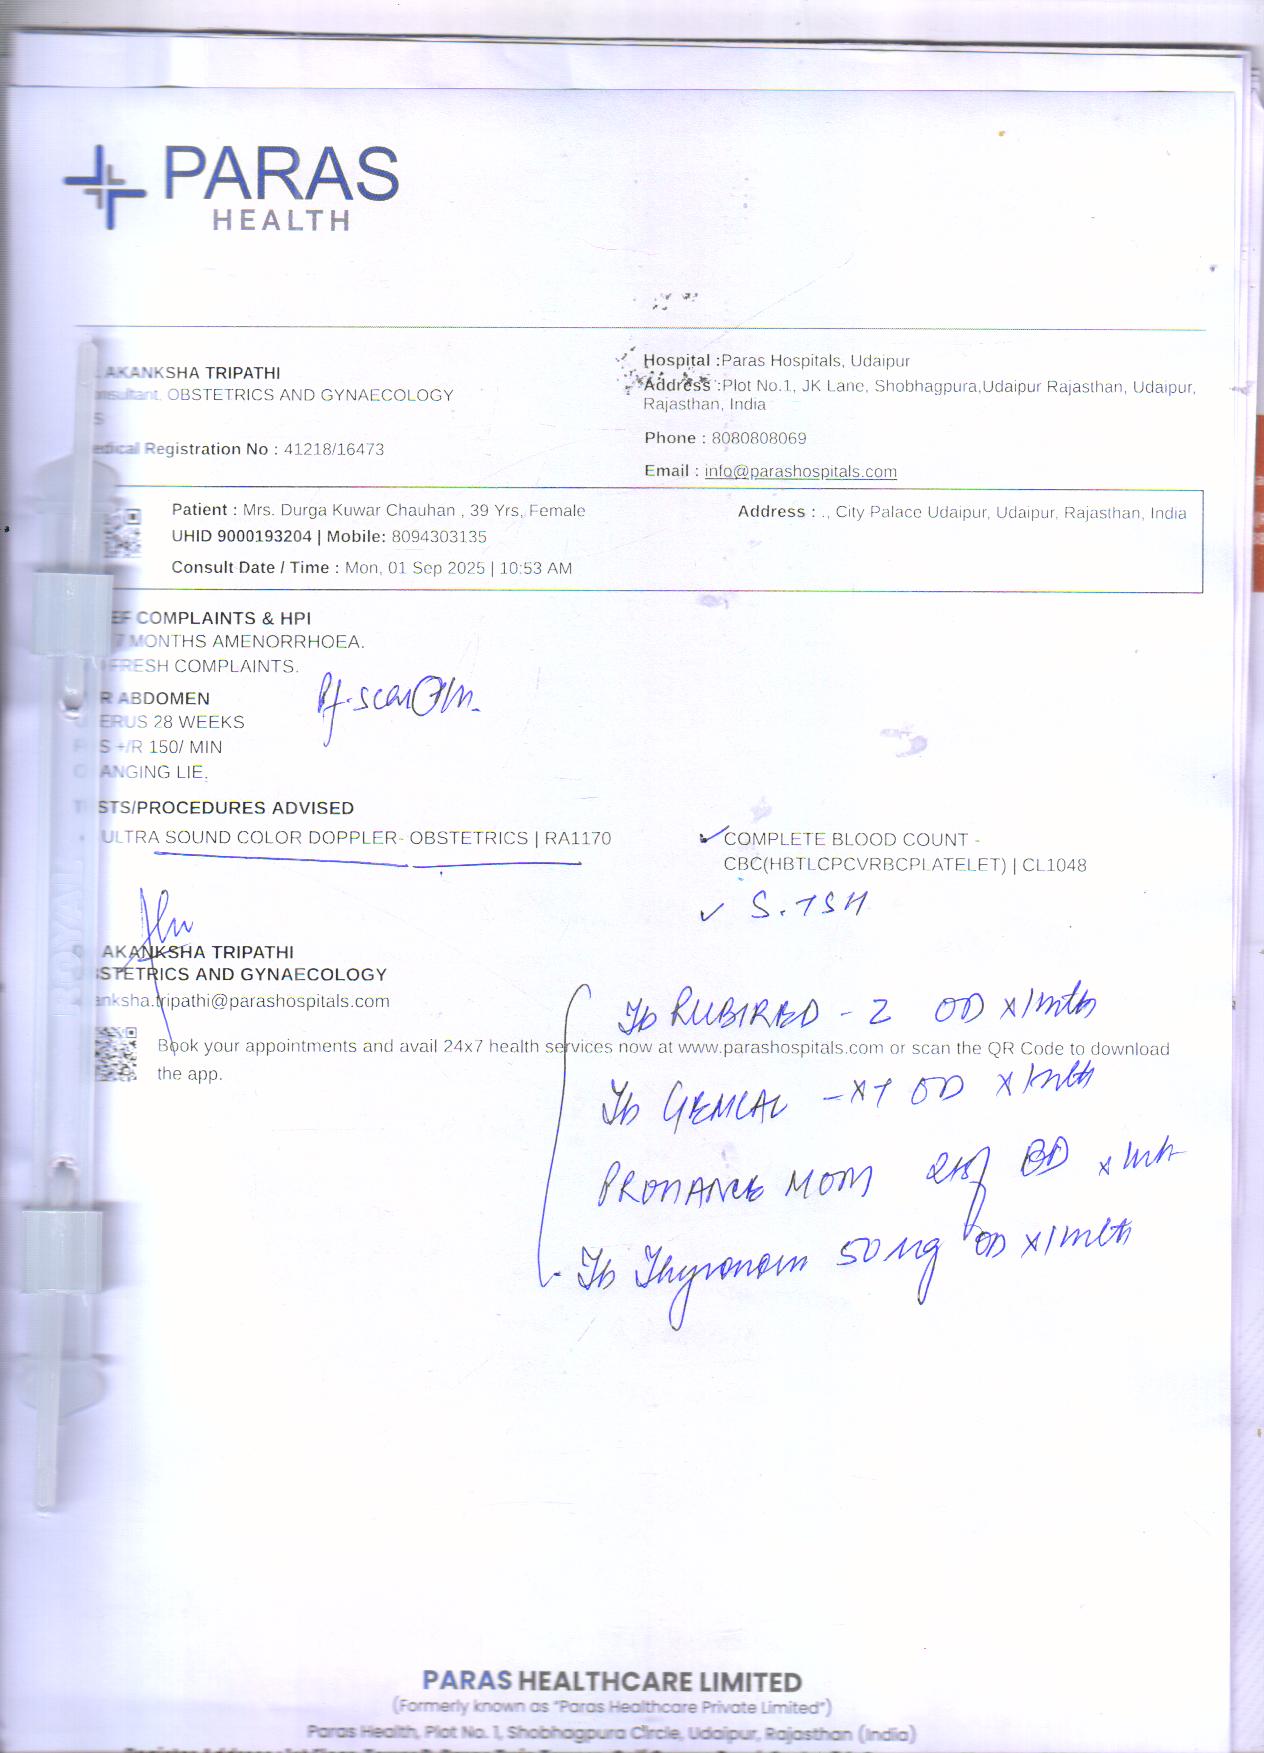 PARAS
HEALTH
AKANKSHA TRIPATHI
OBSTETRICS AND GYNAECOLOGY
Registration No : 41218/16473
Hospital :Paras Hospitals, Udaipur
Address :Plot No.1, JK Lane, Shobhagpura,Udaipur Rajasthan, Udaipur,
Rajasthan, India
Phone : 8080808069
Email : info@parashospitals.com
Patient : Mrs. Durga Kuwar Chauhan , 39 Yrs, Female
UHID 9000193204 | Mobile: 8094303135
Consult Date / Time : Mon, 01 Sep 2025 | 10:53 AM
Address : ., City Palace Udaipur, Udaipur, Rajasthan, India
EF COMPLAINTS & HPI
7 MONTHS AMENORRHOEA.
FRESH COMPLAINTS.
R ABDOMEN
ERUS 28 WEEKS
S +/R 150/ MIN
ANGING LIE,
STS/PROCEDURES ADVISED
ULTRA SOUND COLOR DOPPLER- OBSTETRICS | RA1170
✓ COMPLETE BLOOD COUNT -
CBC(HBTLCPCVRBCPLATELET) | CL1048
✓ S. TSH
AKANKSHA TRIPATHI
STETRICS AND GYNAECOLOGY
anksha.tripathi@parashospitals.com
Tb RUBIRED - Z OD x 1 mth
Book your appointments and avail 24x7 health services now at www.parashospitals.com or scan the QR Code to download
the app.
Tb GEMCAL - XT OD x 1 mth
PRONANCE MOM BD x 1 mth
Tb Thyronorm 50 mg OD x 1 mth
PARAS HEALTHCARE LIMITED
(Formerly known as "Paras Healthcare Private Limited")
Paras Health, Plot No. 1, Shobhagpura Circle, Udaipur, Rajasthan (India)